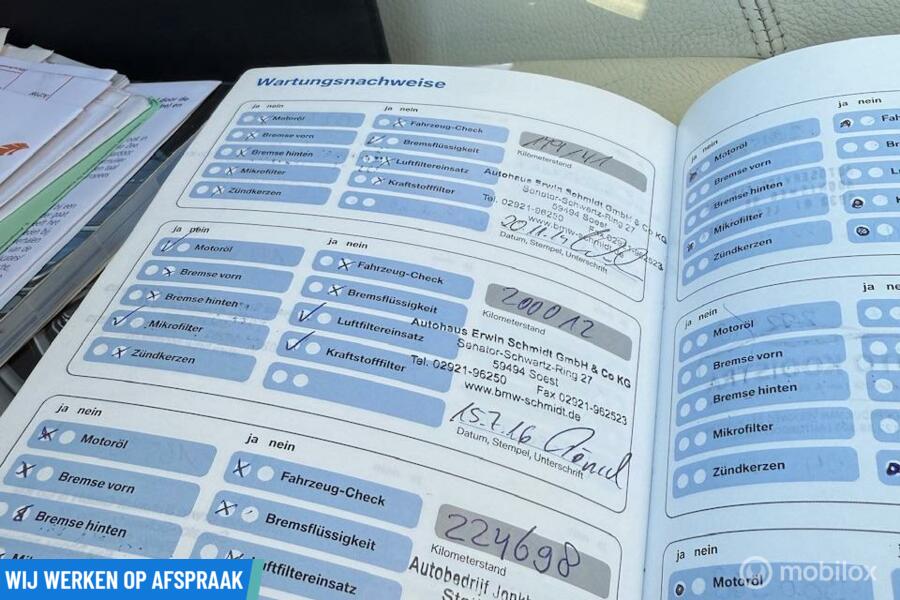 Wartungsnachweise
ja nein
Motoröl
Bremse vorn
Bremse hinten
Mikrofilter
Zündkerzen
ja nein
Fahrzeug-Check
Bremsflüssigkeit
Luftfiltereinsatz
Kraftstofffilter
Kilometerstand
Autohaus Erwin Schmidt GmbH & Co KG
Senator-Schwartz-Ring 27
59494 Soest
Tel. 02921-96250 Fax 02921-962523
www.bmw-schmidt.de
20.11.14
Datum, Stempel, Unterschrift
ja nein
Motoröl
Bremse vorn
Bremse hinten
Mikrofilter
Zündkerzen
ja nein
Fahrzeug-Check
Bremsflüssigkeit
Luftfiltereinsatz
Kraftstofffilter
200012
Kilometerstand
Autohaus Erwin Schmidt GmbH & Co KG
Senator-Schwartz-Ring 27
59494 Soest
Tel. 02921-96250 Fax 02921-962523
www.bmw-schmidt.de
15.7.16
Datum, Stempel, Unterschrift
ja nein
Motoröl
Bremse vorn
Bremse hinten
ja nein
Fahrzeug-Check
Bremsflüssigkeit
uftfiltereinsatz
224698
Kilometerstand
Autobedrijf
ja nein
Motoröl
Bremse vorn
Bremse hinten
Mikrofilter
Zündkerzen
ja nein
ja nein
Motoröl
Bremse vorn
Bremse hinten
Mikrofilter
Zündkerzen
ja nein
Motoröl
WIJ WERKEN OP AFSPRAAK
mobilox